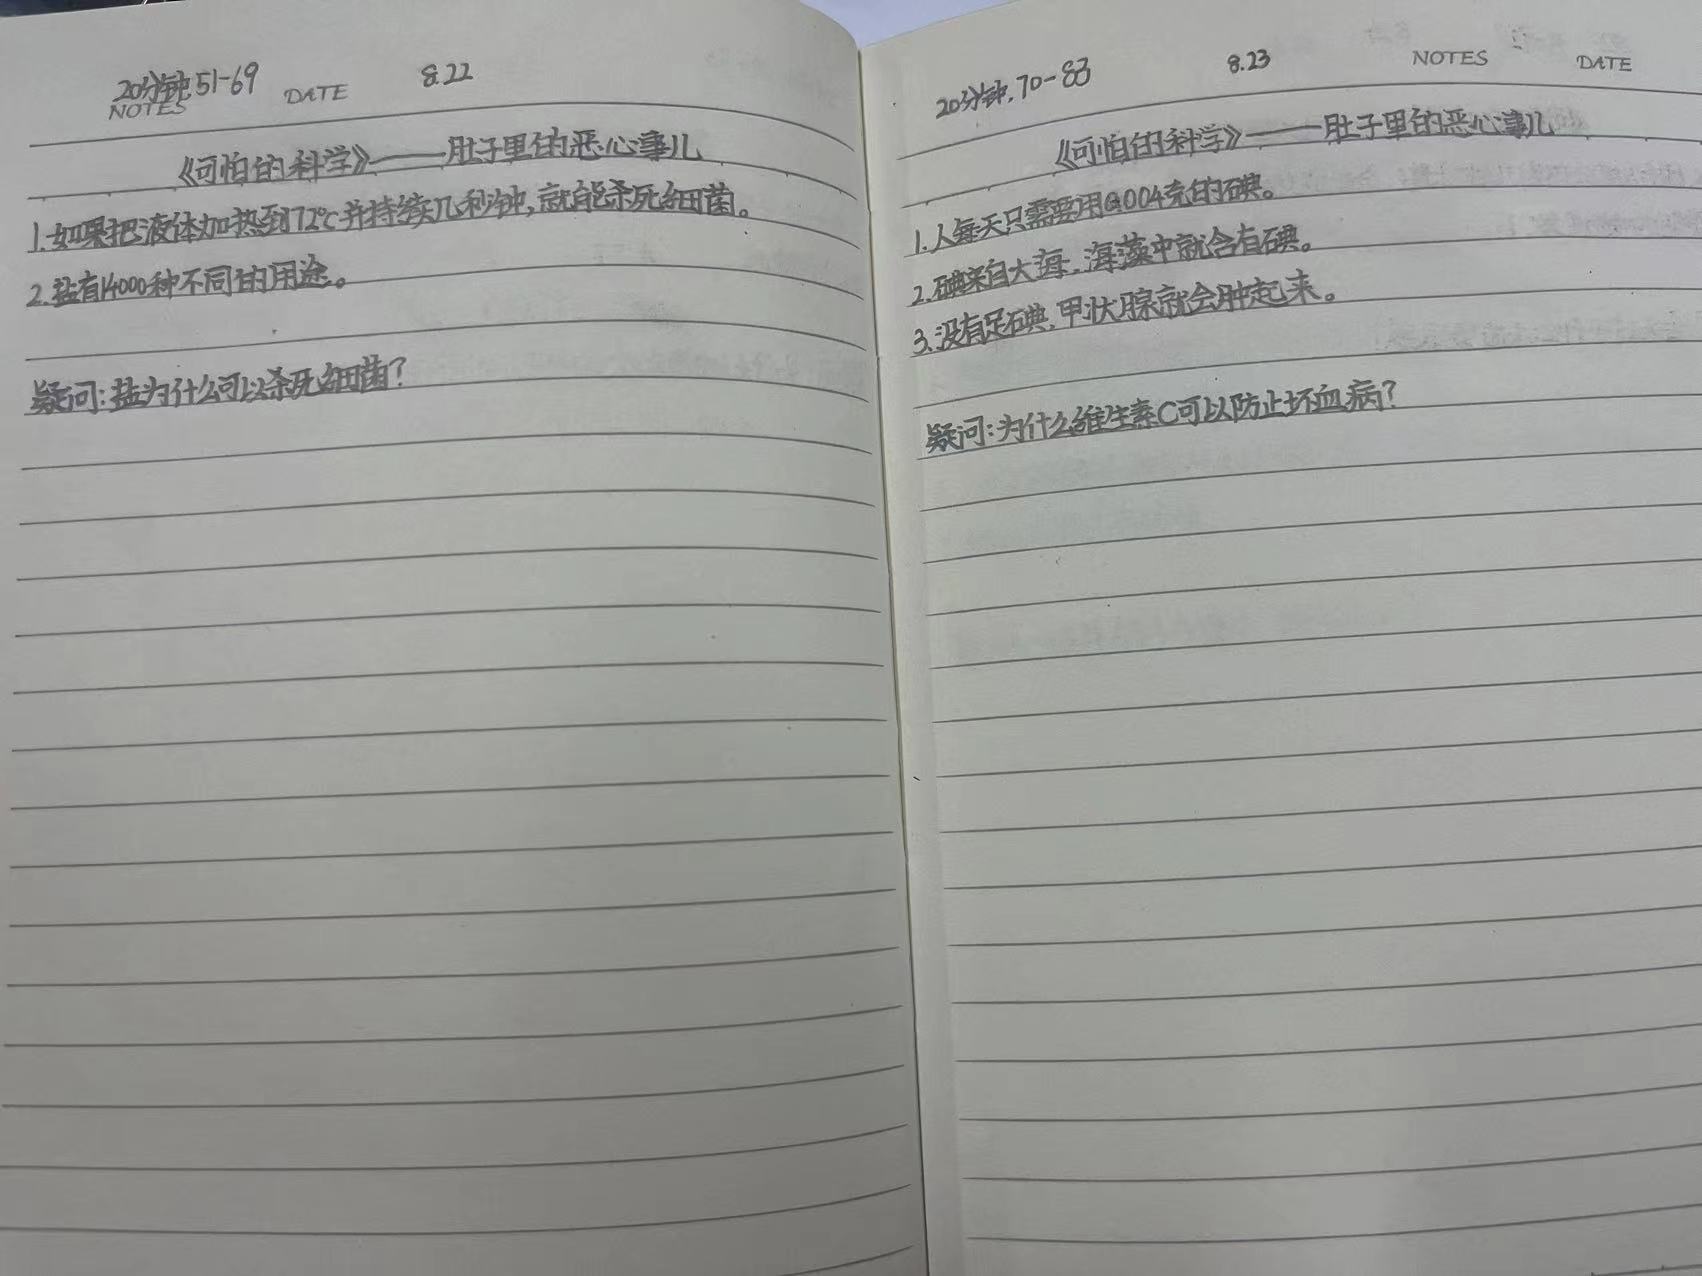 20分钟.51-69
8.22
NOTES
DATE
《可怕的科学》——肚子里的恶心事儿
1.如果把液体加热到72℃并持续几秒钟,就能杀死细菌。
2.盐有14000种不同的用途。
疑问:盐为什么可以杀死细菌?
20分钟.70-83
8.23
NOTES
DATE
《可怕的科学》——肚子里的恶心事儿
1.人每天只需要用0.004克的碘。
2.碘来自大海,海藻中就含有碘。
3.没有足碘,甲状腺就会肿起来。
疑问:为什么维生素C可以防止坏血病?